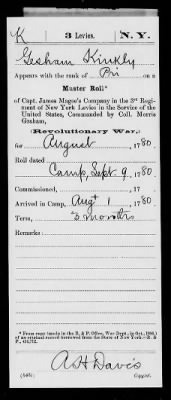 K 3 Levies. N.Y.
Gesham Kinkly
Appears with the rank of Pri on a
Muster Roll*
of Capt. James Magee's Company in the 3d Regi-
ment of New York Levies in the Service of the
United States, Commanded by Coll. Morris
Graham,
(Revolutionary War,)
for August, 1780.
Roll dated
Camp, Sept 9, 1780.
Commissioned, , 17
Arrived in Camp, Augt 1, 1780
Term, 3 months
Remarks:
*From copy (made in the R. & P. Office, War Dept., in Oct.,
of an original record borrowed from the State of New York.—R. &
P.,
A H Davis
Copyist.